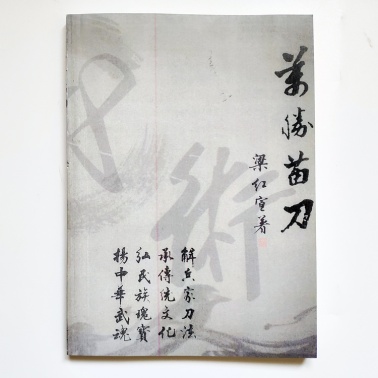 萬勝苗刀
梁红宣著
解兵家刀法
承傳統文化
弘民族瑰寶
揚中華武魂